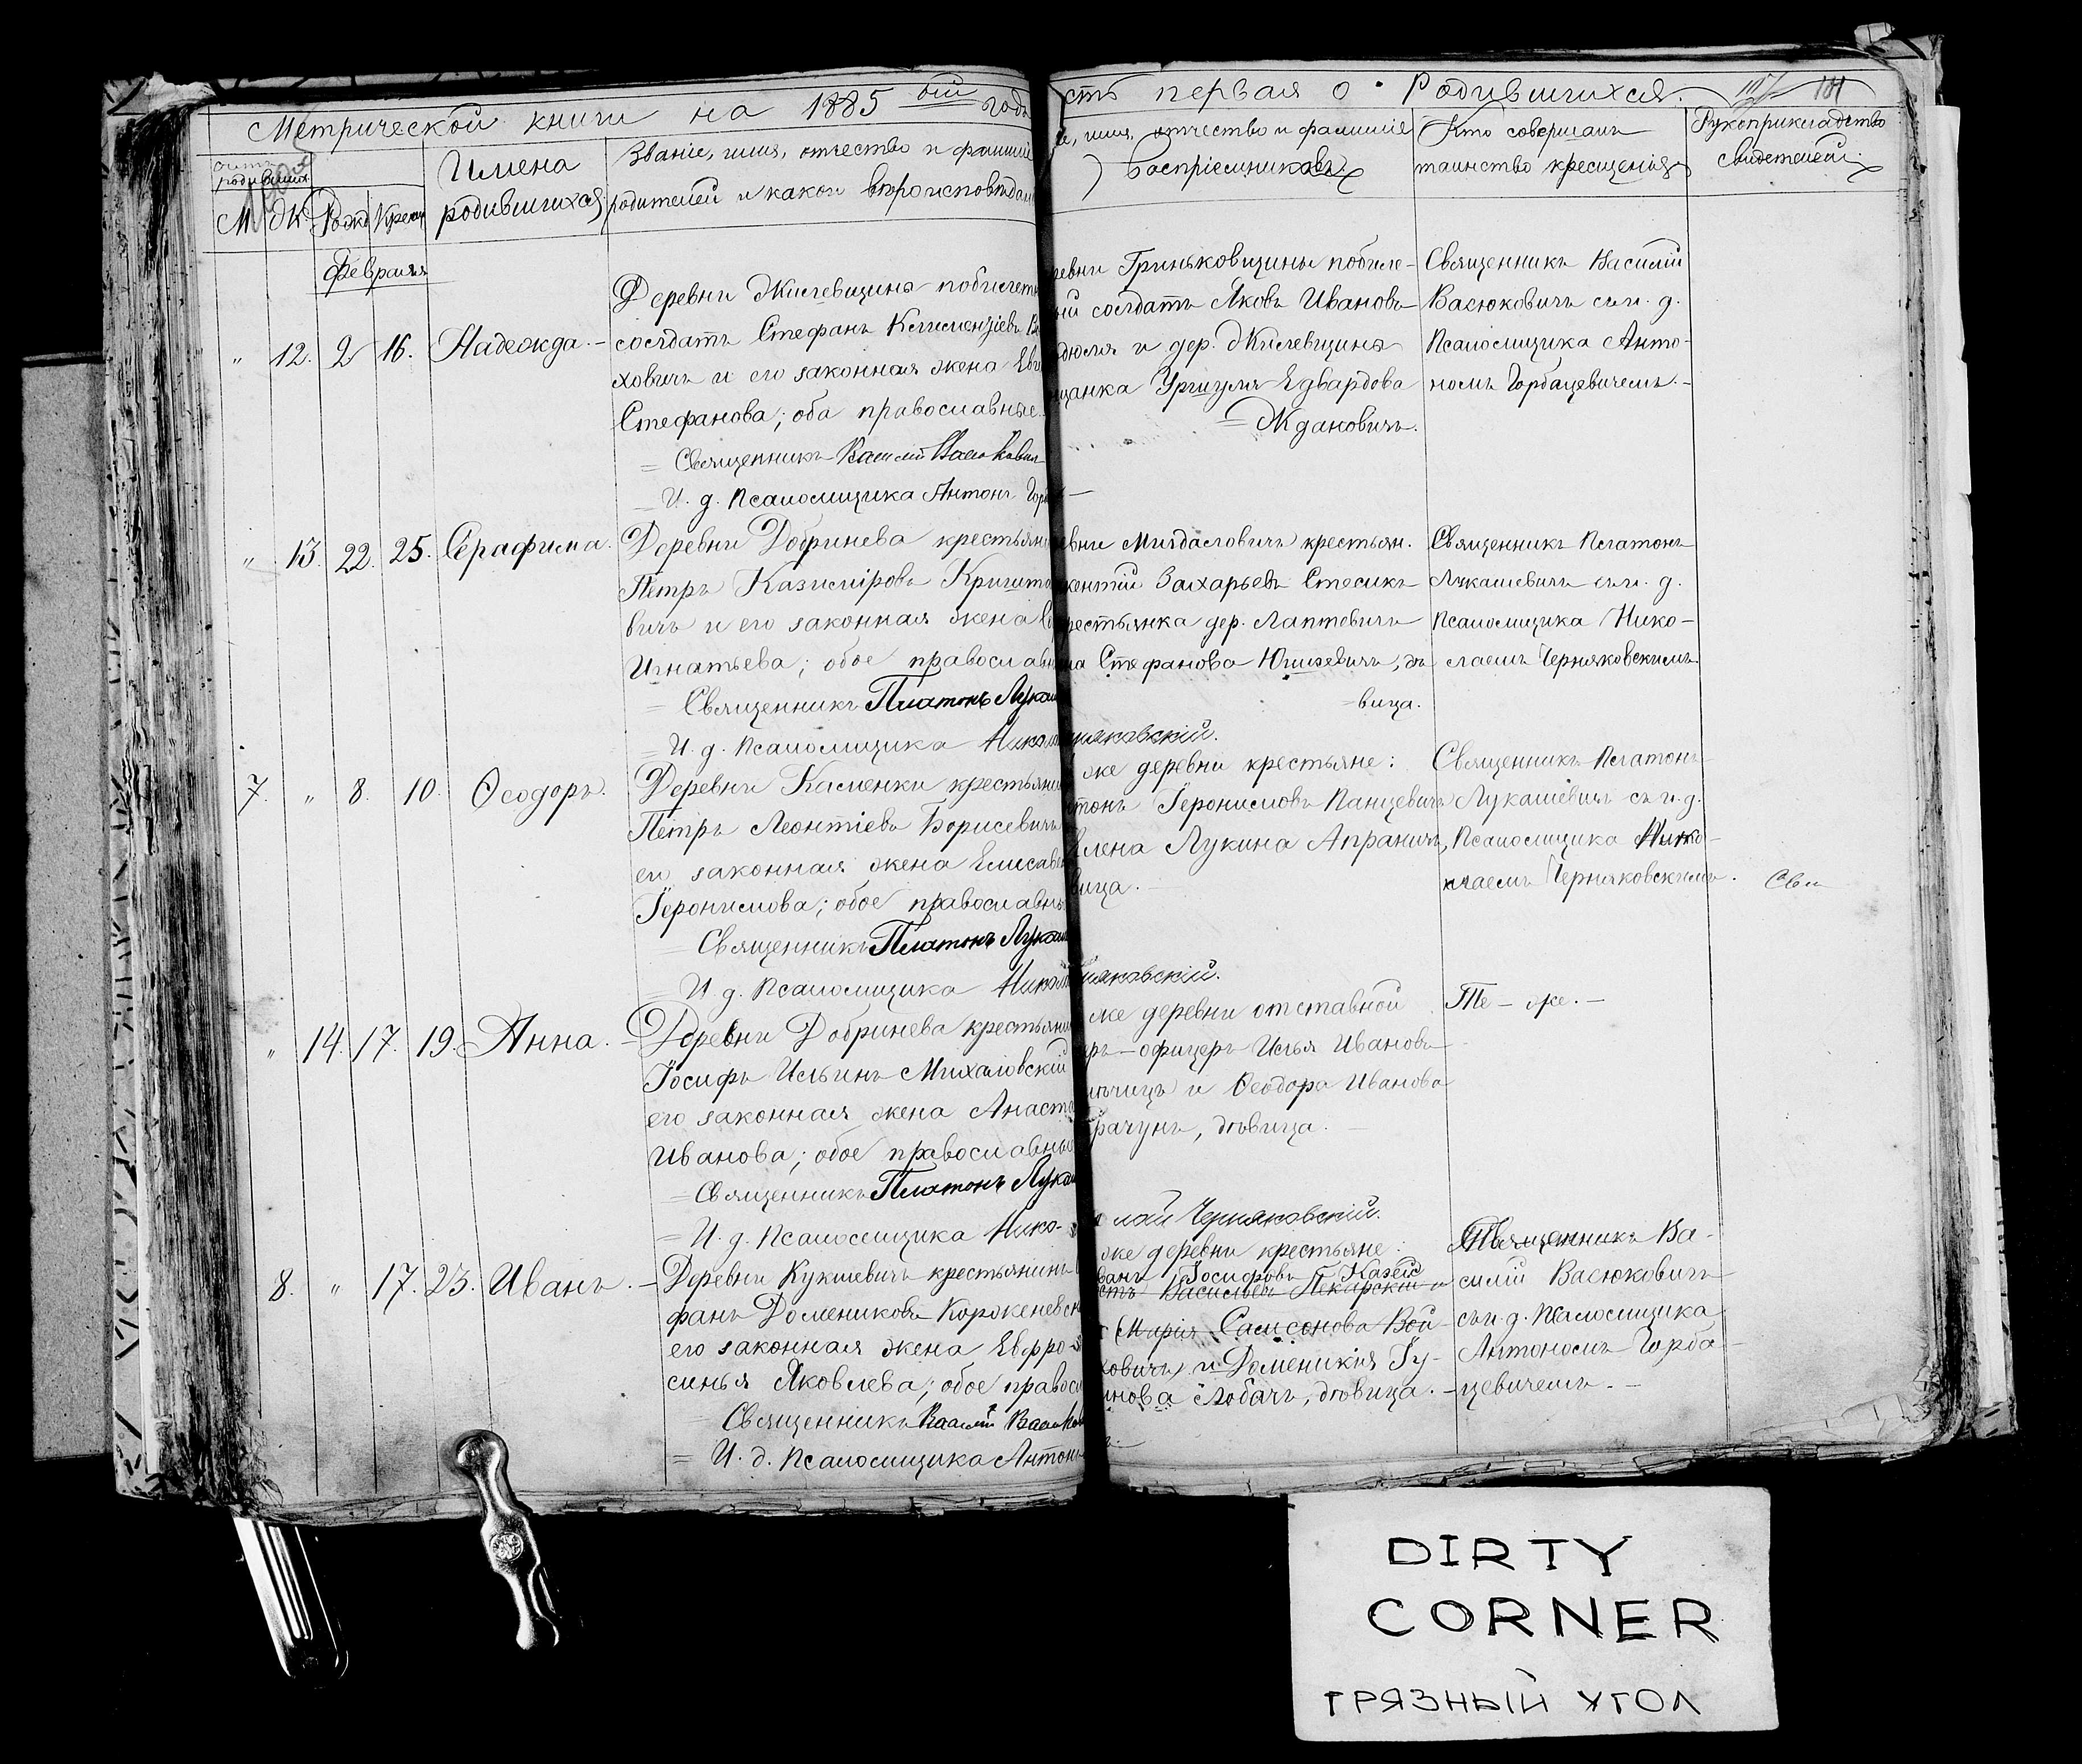 Метрической книги на 1885 ый годъ
сть первая о Родившихся. 101
Счетъ родившихся
М Ж Рожд Крещ
Имена родившихся
Званіе, имя, отчество и фамиліе
родителей и какого вѣроисповѣдан
е, имя, отчество и фамиліе
воспріемниковъ.
Кто совершалъ
таинство крещенія
Рукоприкладство
свидетелей.
Февраля
" 12. 2 16. Надежда. –
Деревни Жилевщина побилетн
солдатъ Стефанъ Климентіевъ
ховичъ и его законная жена Ев
Стефанова; оба православные.
= Священникъ Василій Васюкович
И. д. Псаломщика Антонъ Горб
ревни Гриньковщины побиле-
ый солдатъ Яковъ Ивановъ
и дер. Жилевщина
щанка Уршуля Едвардова
= Ждановичъ.
Священникъ Василій
Васюковичъ съ и. д.
Псаломщика Анто-
номъ Горбацевичемъ. –
" 13. 22. 25. Серафима.
Деревни Добринева крестьян
Петръ Казиміровъ Кришто
вичъ и его законная жена
Игнатьева; обое православн
= Священникъ Платонъ Лукаш
= И. д. Псаломщика Никол
евни Миздаловичъ крестьян.
кентій Захарьевъ Стесикъ
рестьянка дер. Лаптевичъ
на Стефанова Юшкевичъ, дѣ
- вица.
няковскій.
Священникъ Платонъ
Лукашевичъ съ и. д.
Псаломщика Нико-
лаемъ Черняковскимъ.
7. " 8. 10. Ѳеодоръ.
Деревни Каменки крестьянин
Петръ Леонтіевъ Борисевичъ
его законная жена Елисаве
Іеронимова; обое православн
= Священникъ Платонъ Лукаш
И. д. Псаломщика Никол
же деревни крестьяне:
тонъ Іеронимовъ Панцевичъ
Елена Лукина Апранич,
вица. –
няковскій.
Священникъ Платонъ
Лукашевичъ съ и. д.
Псаломщика Нико-
лаемъ Черняковскимъ.
Сви
" 14. 17. 19. Анна. –
Деревни Добринева крестьянин
Іосифъ Ильинъ Михаловскій
его законная жена Анаста
Иванова; обое православны
= Священникъ Платонъ Лукаш
= И. д. Псаломщика Нико-
же деревни отставной
ръ-офицеръ Илья Ивановъ
и Ѳеодора Иванова
рачунъ, дѣвица. –
лай Черняковскій.
Тѣ – же. –
8. " 17. 23. Иванъ. –
Деревни Кукшевичъ крестьянинъ
фанъ Домениковъ Корокеневск
его законная жена Евфро-
синья Яковлева; обое правосл
Священникъ Василій Васюков
= И. д. Псаломщика Антонъ
же деревни крестьяне:
ванъ Іосифовъ Казей
стъ Васильевъ Пекарскій и
(Марія Самсонова Вой-
ковичъ) и Доменикія Гу-
инова Лобачъ, дѣвица. –
Священникъ Ва-
силій Васюковичъ
съ и. д. Псаломщика
Антономъ Горба-
цевичемъ. –
DIRTY
CORNER
ГРЯЗНЫЙ УГОЛ